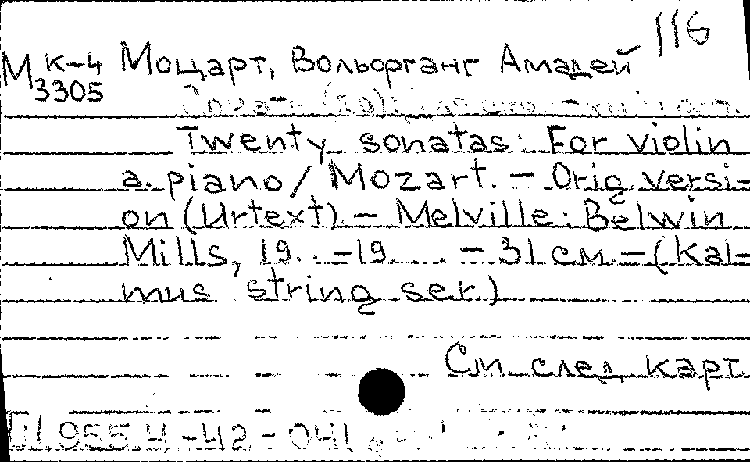 116
М К-4 Моцарт, Вольфганг Амадей
3305
Twenty sonatas: For violin
a. piano / Mozart. - Orig. versi-
on (Urtext). - Melville: Belwin
Mills, 19. . -19 . . . - 31 см - (Kal-
mus string ser.)
См. след. карт.
955.4-42-041